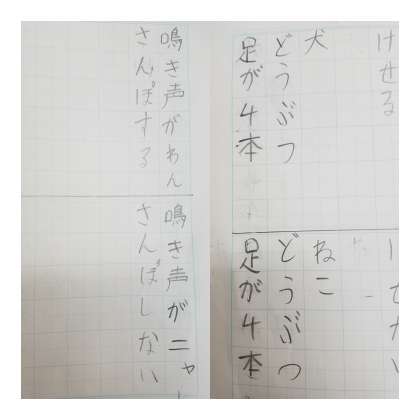 けせる
犬
どうぶつ
足が4本
ねこ
どうぶつ
足が4本
鳴き声がわん
さんぽする
鳴き声がニャー
さんぽしない